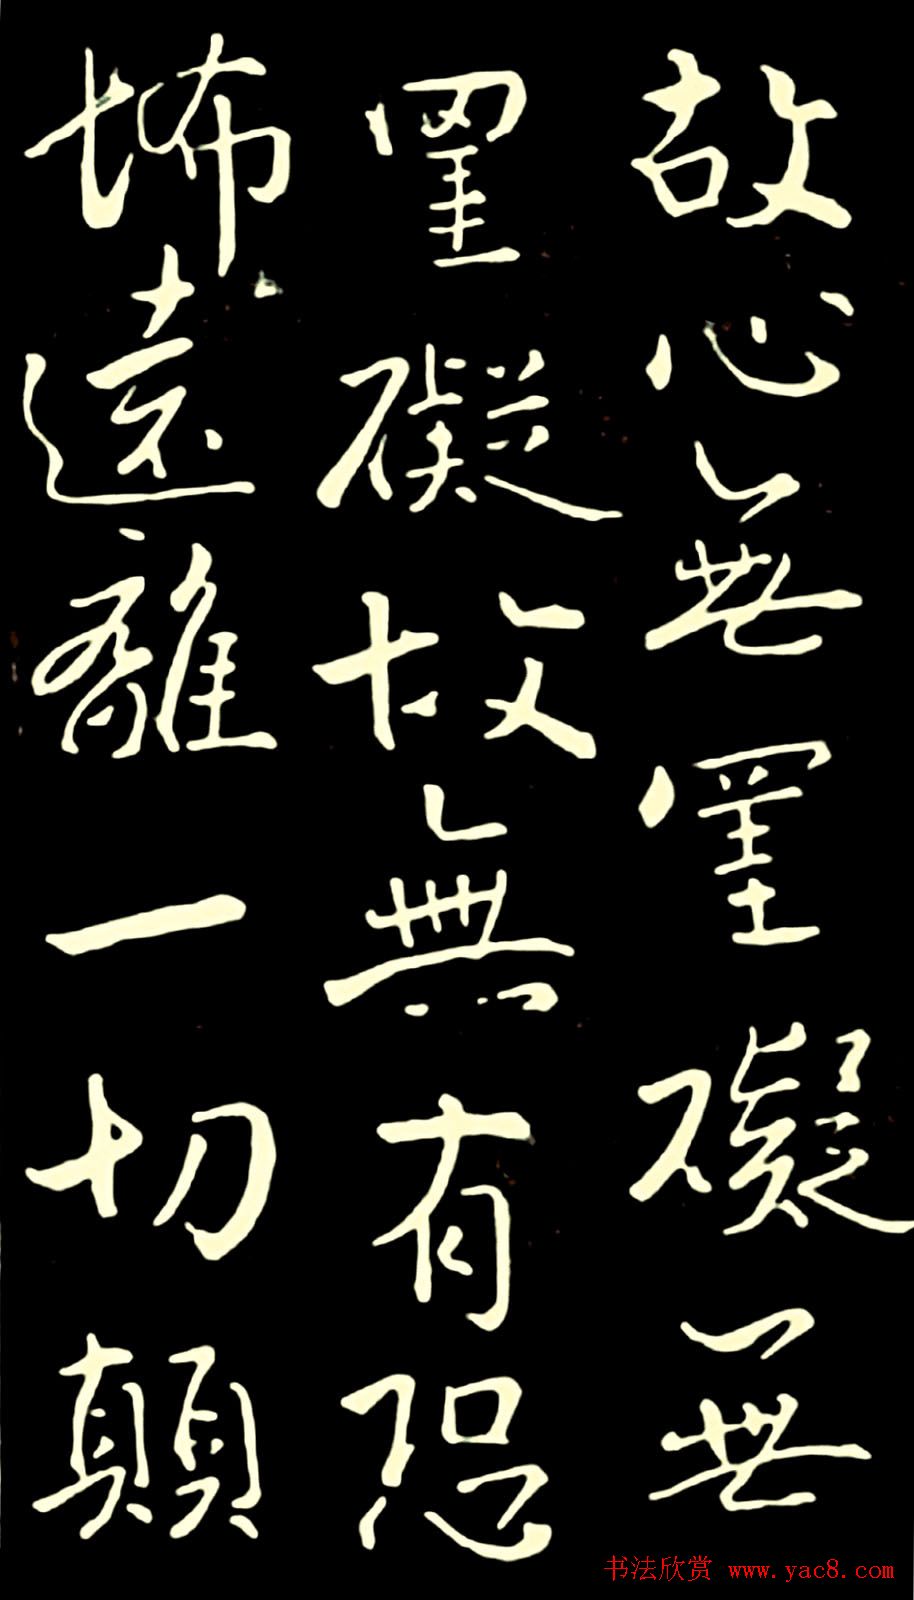 故心無罣礙無
罣礙故無有恐
怖遠離一切顛
书法欣赏 www.yac8.com